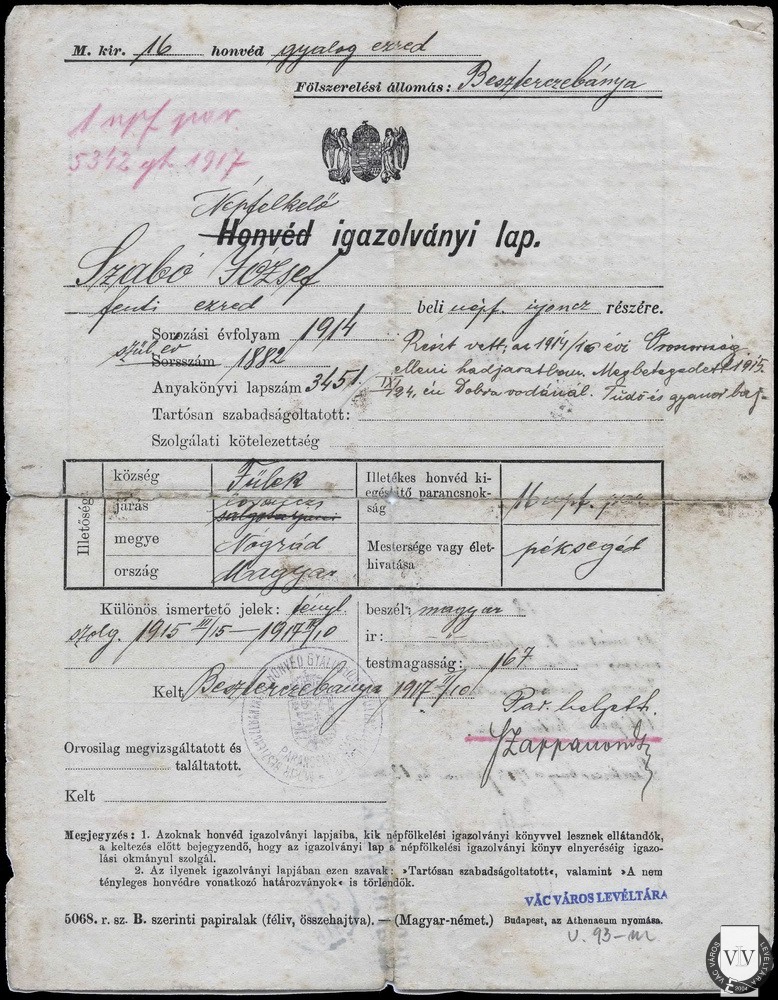 M. kir. 16 honvéd gyalog ezred
Fölszerelési állomás: Beszterczebánya
1 npf par.
5342 gh 1917
Népfelkelő
Honvéd igazolványi lap.
Szabó József
fenti ezred beli népf. ujoncz részére.
Sorozási évfolyam 1914
szül. év
Sorsszám 1882
Anyakönyvi lapszám 3451
Részt vett az 1914/15 évi Oroszország
elleni hadjáratban. Megbetegedett 1915
IX/24. én Dobra vodánál. Tüdő és gyomor baj
Tartósan szabadságoltatott:
Szolgálati kötelezettség
Illetőség
község Fülek
járás losonczi salgótarjáni
megye Nógrád
ország Magyar
Illetékes honvéd ki-
egészítő parancsnok-
ság 16 népf.
Mestersége vagy élet-
hivatása péksegéd
Különös ismertető jelek: tényl.
szolg. 1915 III/15 — 1917 II/10
beszél: magyar
ir: "
testmagasság: 167
Kelt Beszterczebánya 1917 II/10
Par. helyett.
Orvosilag megvizsgáltatott és
találtatott.
Kelt
Megjegyzés: 1. Azoknak honvéd igazolványi lapjaiba, kik népfölkelési igazolványi könyvvel lesznek ellátandók,
a keltezés előtt bejegyzendő, hogy az igazolványi lap a népfölkelési igazolványi könyv elnyeréséig igazo-
lási okmányul szolgál.
2. Az ilyenek igazolványi lapjában ezen szavak: »Tartósan szabadságoltatott«, valamint »A nem
tényleges honvédre vonatkozó határozványok« is törlendők.
VÁC VÁROS LEVÉLTÁRA
5068. r. sz. B. szerinti papiralak (féliv, összehajtva). — (Magyar-német.) Budapest, az Athenaeum nyomása.
V. 93-m
VÁC VÁROS LEVÉLTÁRA
VL
2004